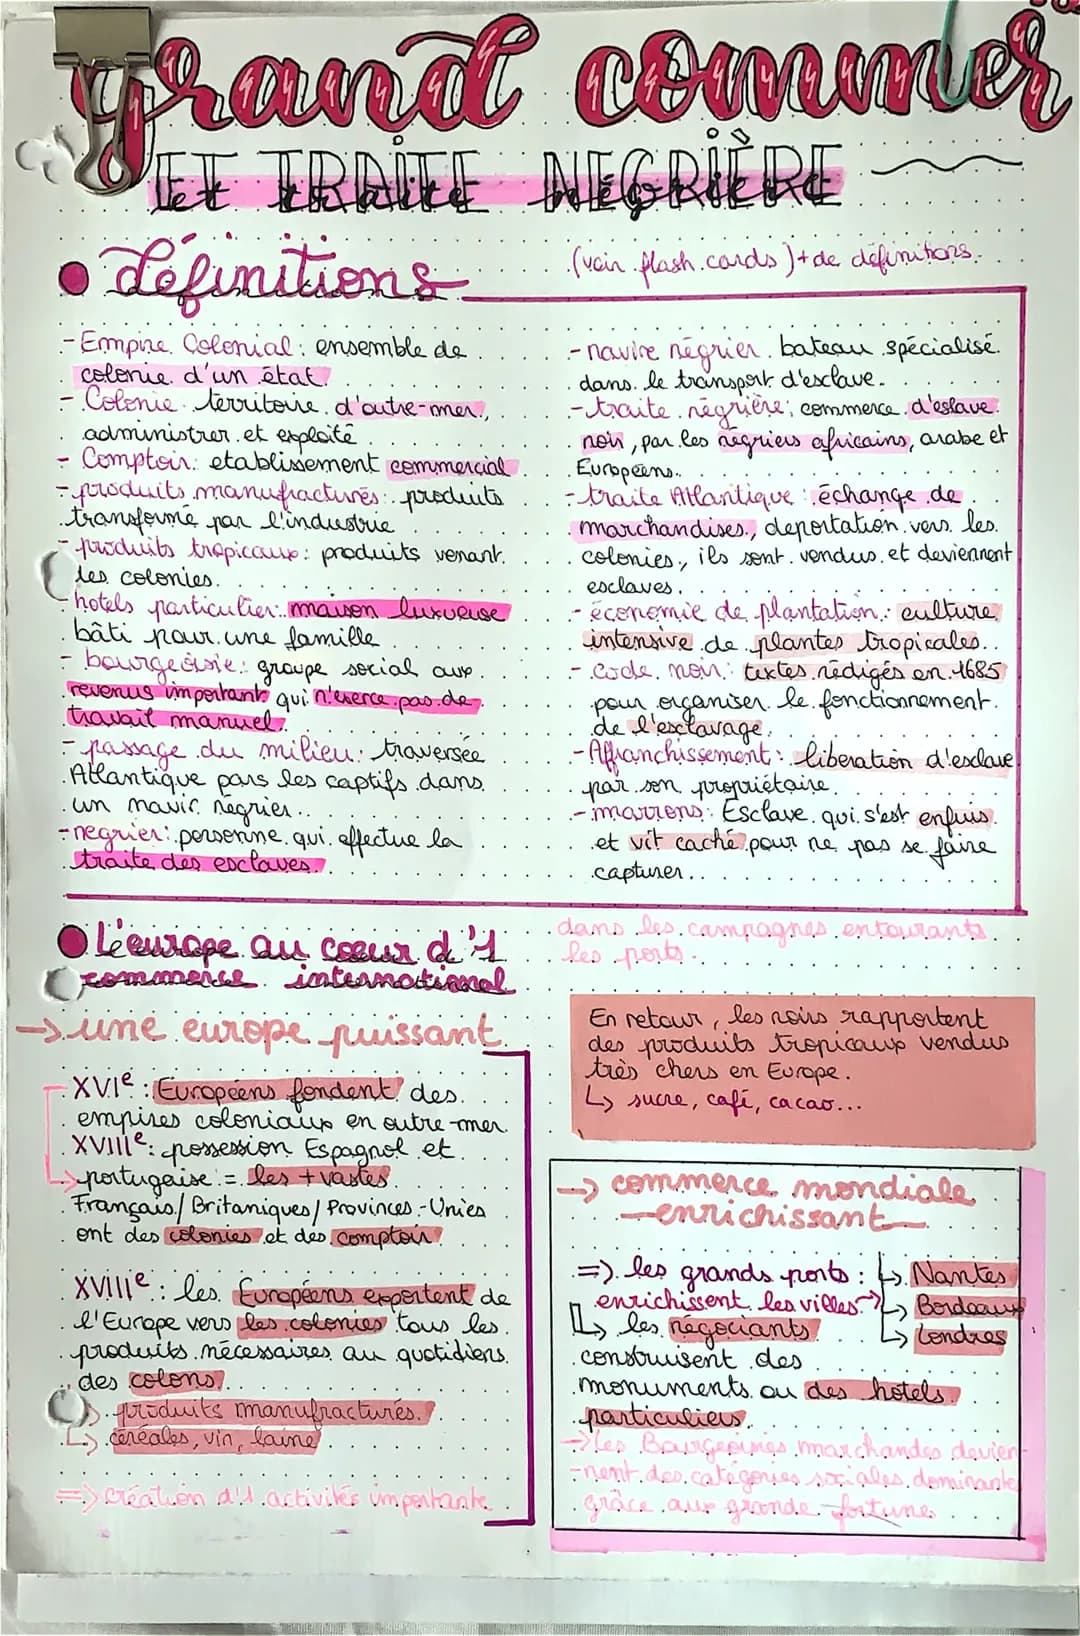 grand commer
ET TRAITE NEGRIÈRE
définitions
(voir flash cards) + de définitions.
- Empire Colonial : ensemble de
colonie d'un état.
- Colonie territoire d'outre-mer,
administrer et exploité
- Comptoir: etablissement commercial
- produits manufacturés : produits
transformé par l'industrie
- produits tropicaux : produits venant
des colonies.
- hotels particulier: maison luxueuse
bâti pour une famille
- bourgeoisie : groupe social aux
revenus important qui n'exerce pas de
travail manuel.
- passage du milieu : traversée
Atlantique pars les captifs dans
un navir négrier..
- negrier : personne qui effectue la
traite des esclaves.
- navire négrier. bateau spécialisé
dans le transport d'esclave.
- traite négrière; commerce d'eslave
noir, par les négriers africains, arabe et
Européens.
- traite Atlantique : échange de
marchandises, deportation vers les
colonies, ils sont vendus et deviennent
esclaves.
- économie de plantation : culture
intensive de plantes tropicales.
- code noir : textes rédigés en 1685
pour organiser le fonctionnement
de l'esclavage
- Affranchissement : liberation d'esclave
par son propriétaire.
- marrons : Esclave qui s'est enfuis
et vit caché pour ne pas se faire
capturer..
L'europe au coeur d'1
commerce international
→ une europe puissant
XVIe : Européens fondent des
empires coloniaux en outre-mer
XVIIIe : possession Espagnol et
portugaise = les + vastes
Français / Britaniques / Provinces-Unies
ont des colonies et des comptoir
XVIIIe : les Européens exportent de
l'Europe vers les colonies tous les
produits nécessaires au quotidiens
des colons.
↳ produits manufacturés.
↳ céréales, vin, laine
⇒ création d'1 activités importante
dans les campagnes entourants
les ports.
En retour, les noirs rapportent
des produits tropicaux vendus
très chers en Europe.
↳ sucre, café, cacao...
→ commerce mondiale
enrichissant
⇒ les grands ports : ↳ Nantes
enrichissent les villes → ↳ Bordeaux
↳ les négociants ↳ Londres
construisent des
monuments ou des hotels
particuliers
→ Les Bourgeoisies marchandes devien-
-nent des catégories sociales dominante
grâce aux grande fortune